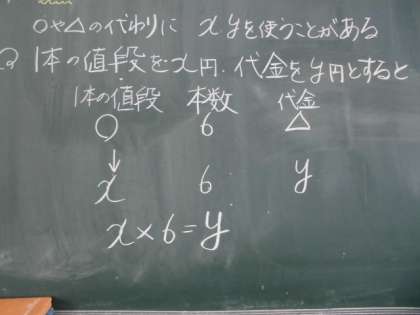 ○や△の代わりに x yを使うことがある
1本の値段をx円、代金をy円とすると
1本の値段 本数 代金
○ 6 △
↓
x 6 y
x×6=y